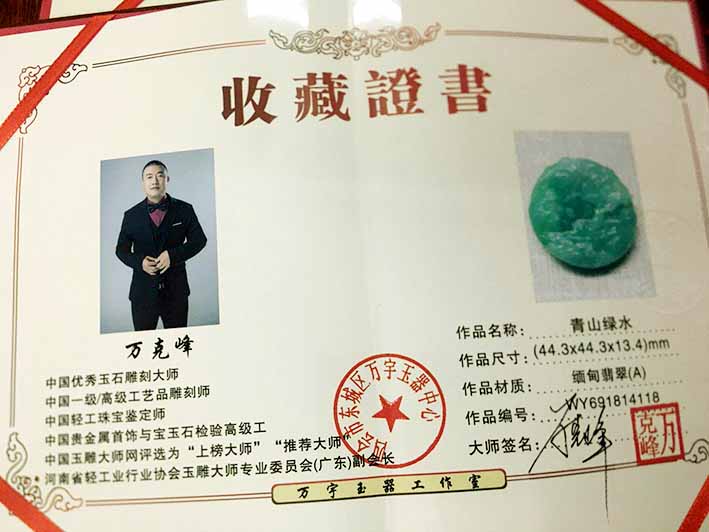 收藏證書
万克峰
中国优秀玉石雕刻大师
中国一级/高级工艺品雕刻师
中国轻工珠宝鉴定师
中国贵金属首饰与宝玉石检验高级工
中国玉雕大师网评选为“上榜大师”“推荐大师”
河南省轻工业行业协会玉雕大师专业委员会(广东)副会长
会市东城区万宇玉器中心
作品名称: 青山绿水
作品尺寸: (44.3x44.3x13.4)mm
作品材质: 缅甸翡翠(A)
作品编号: WY691814118
大师签名:
万克峰
万宇玉器工作室